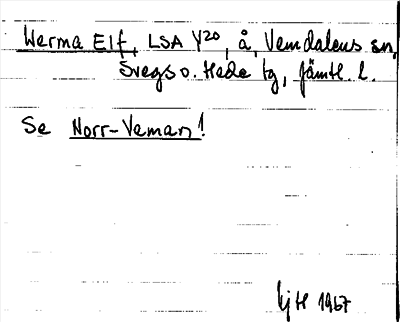 Werma Elf, LSA Y20, å, Vemdalens sn,
Svegs o. Hede tg, Jämtl. l.
Se Norr-Veman!
HjH 1967